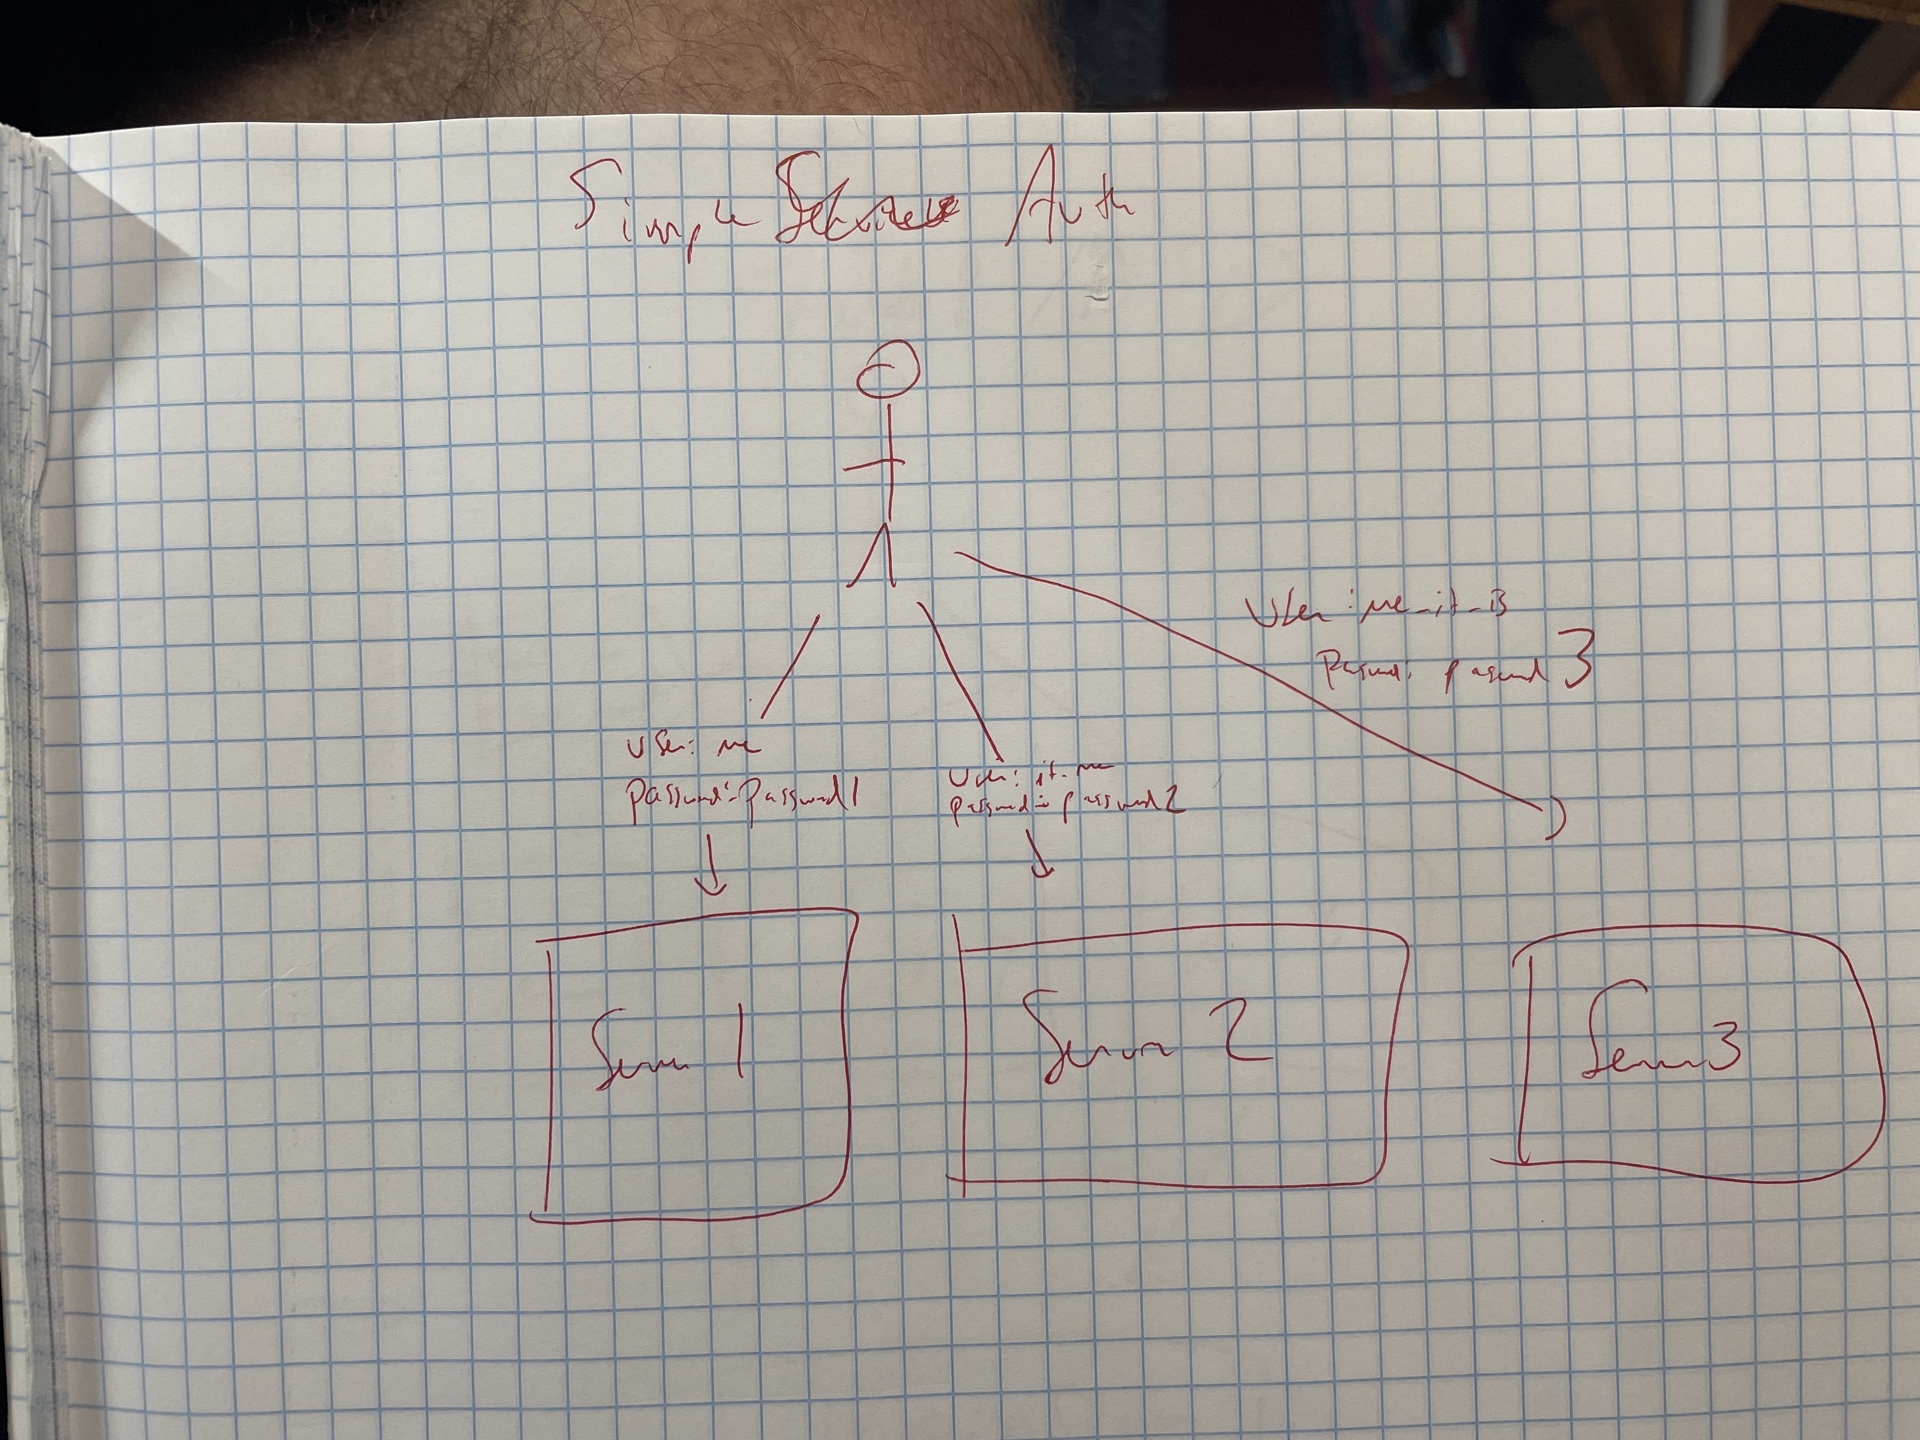 Simple Auth
User: me_it_is
Password: password 3
User: me
Password: password1
User: it-me
password: password2
Server 1
Server 2
Server 3